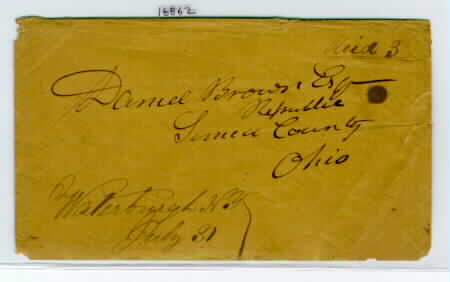 16862
Paid 3
Daniel Brown Esq
Republic
Seneca County
Ohio
Waterburgh N.Y
July 31